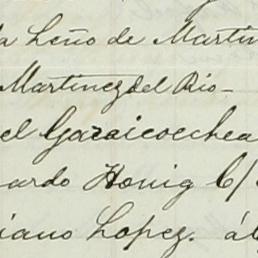 a Leño de Martin
Martinez del Rio-
el Gazaicoechea
ardo Honig C/
iano Lopez. á